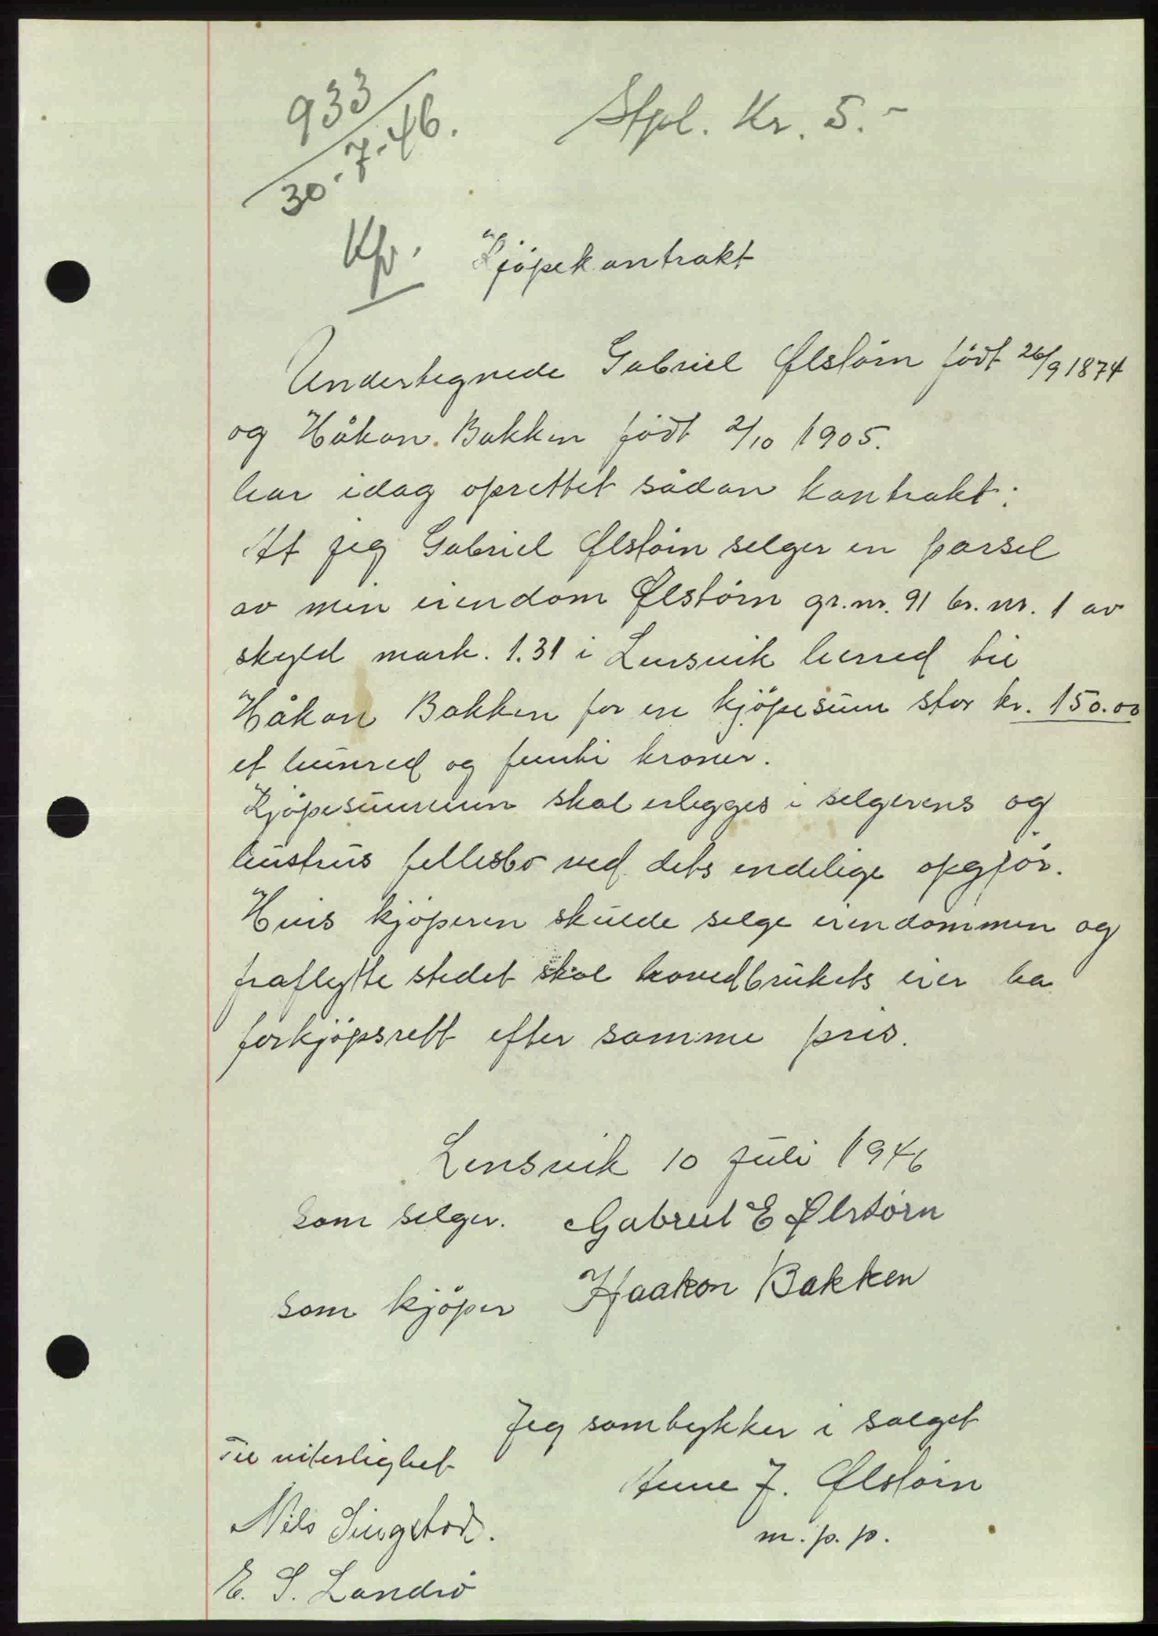 933
30-7-46.
Stpl. Kr. 5.-
Kfr.
Kjöpekontrakt
Undertegnede Gabriel Ølstörn födt 26/9 1874
og Håkon Bakken födt 2/10 1905.
har idag oprettet sådan kontrakt:
At jeg Gabriel Ølstörn selger en parsel
av min eiendom Ølstörn gr.nr. 91 br.nr. 1 av
skyld mark. 1.31 i Lensvik herred til
Håkon Bakken for en kjöpesum stor kr. 150.00
et hunred og femti kroner.
Kjöpesummen skal erlegges i selgerens og
hustrus fellesbo ved dets endelige opgjör.
Hvis kjöperen skulde selge eiendommen og
fraflytte stedet skal hovedbrukets eier ha
forkjöpsrett efter samme pris.
Lensvik 10 juli 1946
som selger. Gabriel E Ølstörn
som kjöper Haakon Bakken
Jeg samtykker i salget
Til viterlighet
J. Ølstörn
m.p.p.
Nils Singstad.
E. S. Landrö